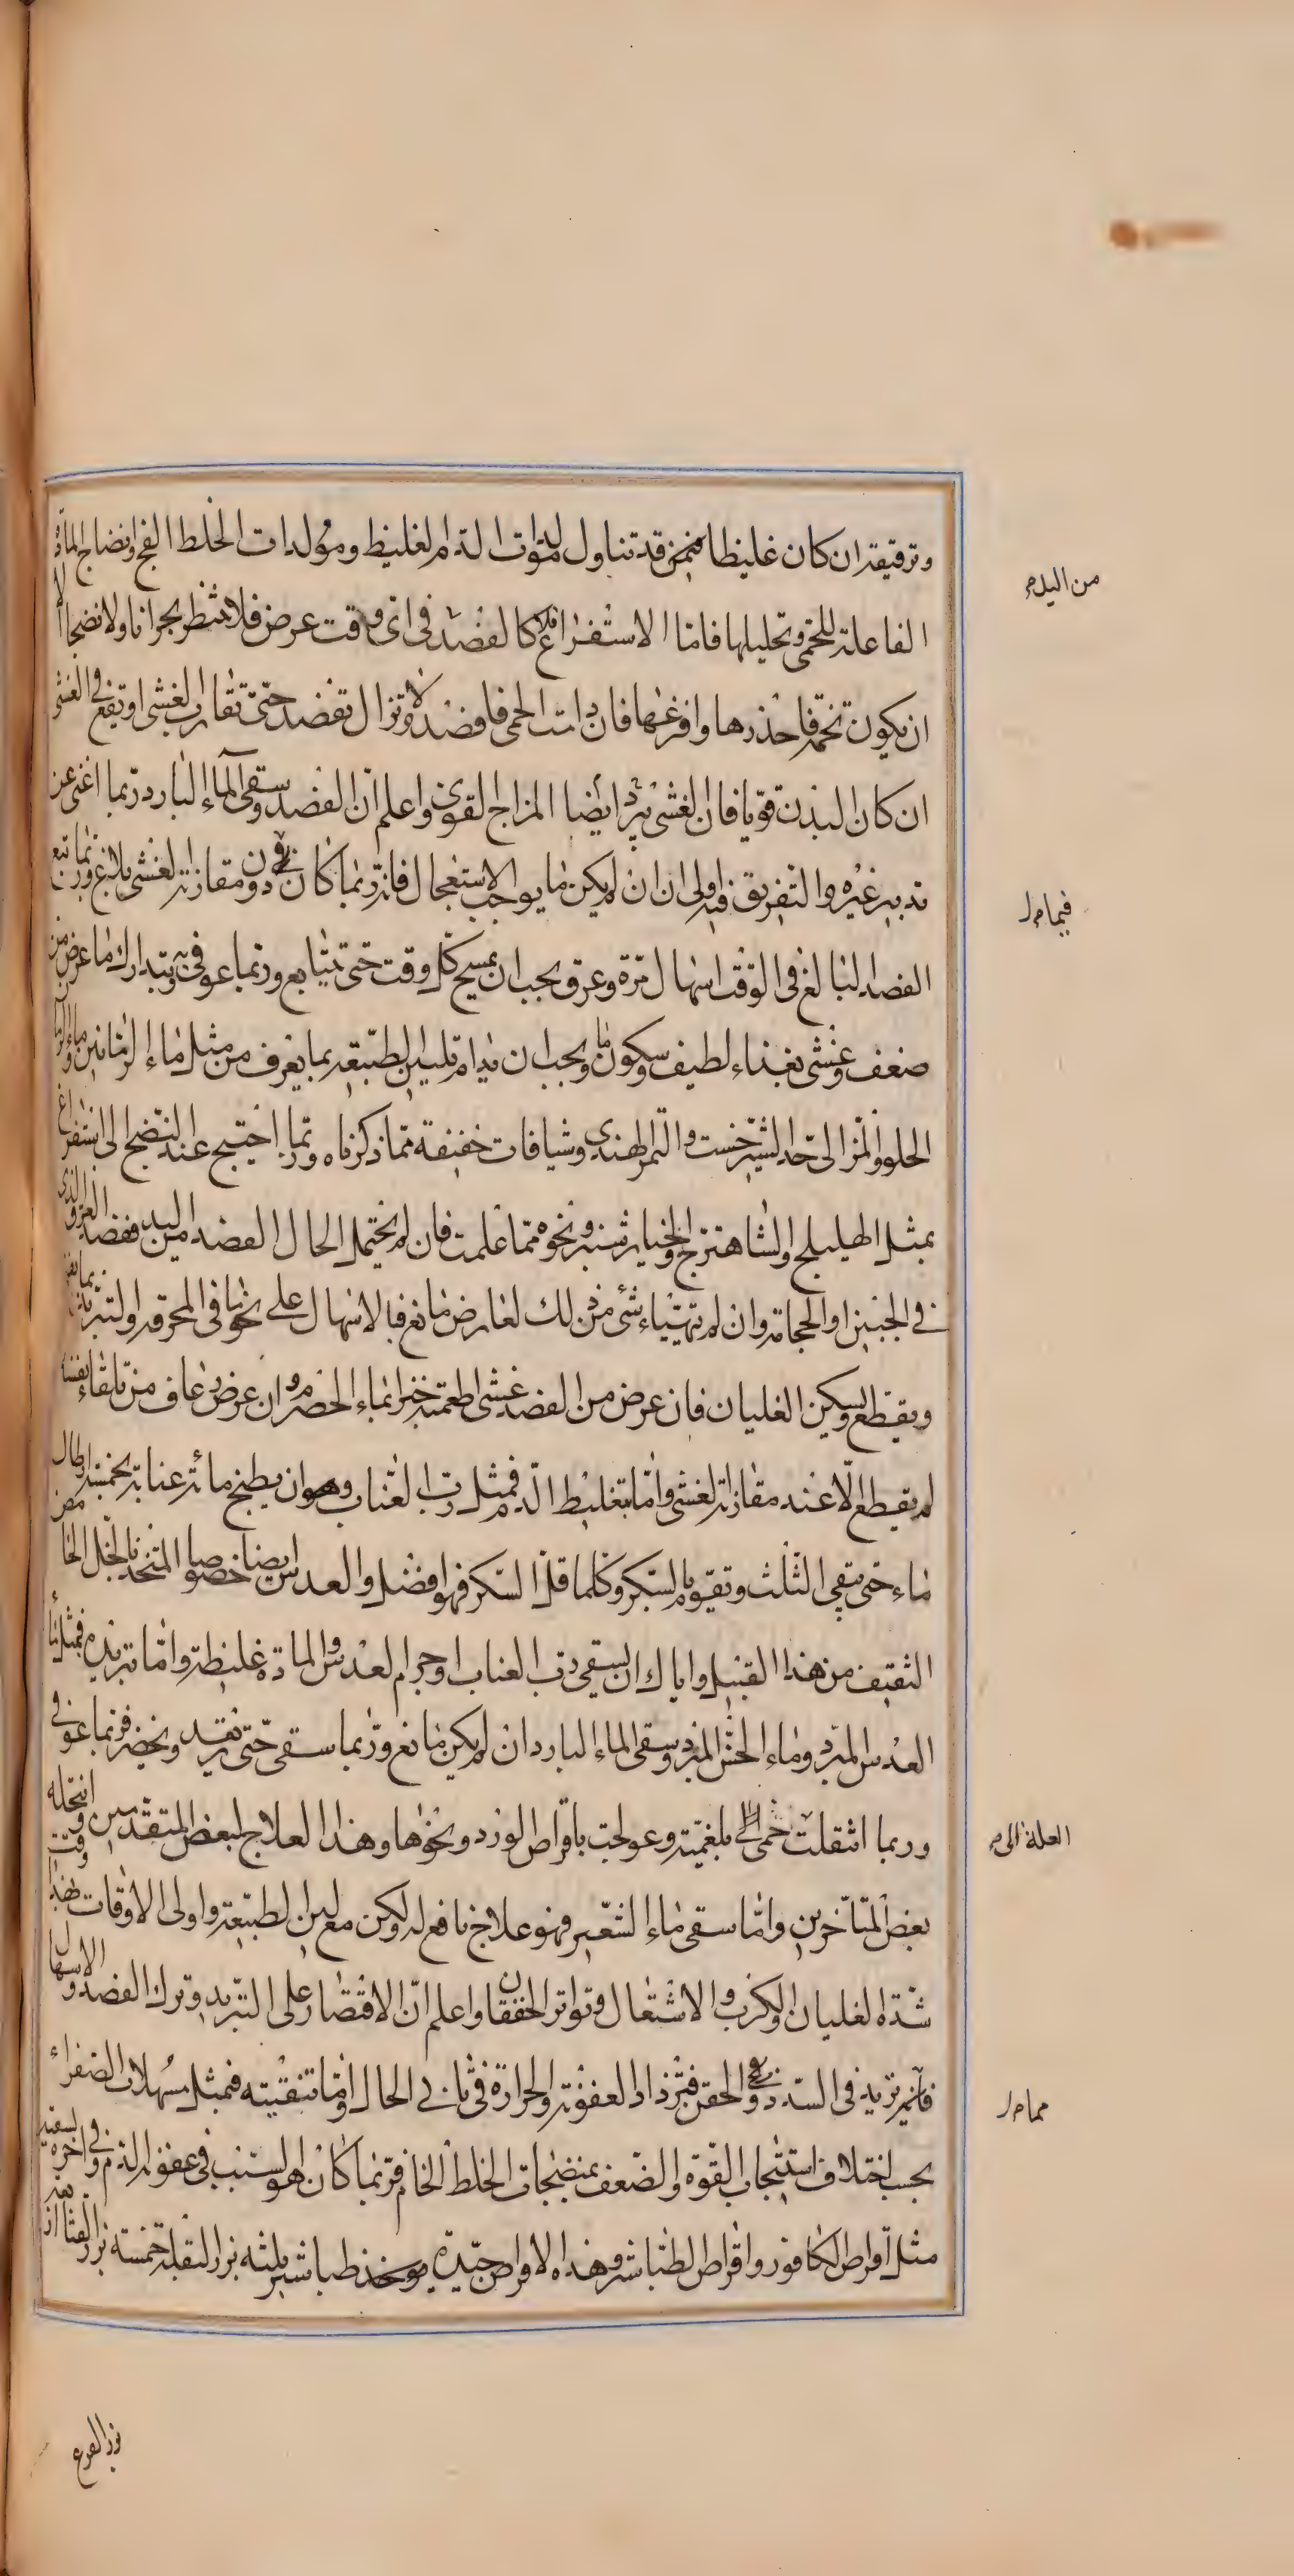 وترقيقه ان كان غليظا فيمن قد تناول مولدات الدم الغليظ ومولدات الخلط الفج وانضاج المادة
من اليد م
الفاعلة للحمى وتحليلها فاما الاستفراغ فكالفصد في اى وقت عرض فلا تنتظر بحرانا ولا نضجا الا
ان يكون تخمة فاحذرها وافرغها فان دامت الحمى فافصد ولا تزال تفصد حتى تقارب الغشى او تقع في الغشى
ان كان البدن قويا فان الغشى يبرد ايضا المزاج القوى واعلم ان الفصد وسقى الماء البارد ربما اغنى عن
تدبير غيره والتفريق فيه اولى ان لم يكن ما يوجب الاستعجال فانه ربما كان في دون مقاربة الغشى بلاغ وربما تبع
فيما م ر
الفصد البالغ في الوقت اسهال مرة وعرق يجب ان يمسح كل وقت حتى يتتابع وربما عوفى به ويتدارك ما عرض من
ضعف وغشى بغذاء لطيف وسكون ما ويجب ان يدام تليين الطبيعة بما يعرف من مثل ماء الرمانين وماء الرمان
الحلو والمز الى حد الشيرخشت والتمر الهندى وشيافات خفيفة مما ذكرناه وربما احتيج عند النضج الى استفراغ
بمثل الهليلج والشاهترج والخيار شنبر ونحوه مما علمت فان لم يحتمل الحال الفصد من اليد ففصد العرق الذى
في الجبين او الحجامة وان لم يتهياء شئ من ذلك لعارض مانع فالاسهال على نحو ما في المحرقة والتبريد بما
ويقطع ويسكن الغليان فان عرض من الفصد غشى اطعمته خبزا بماء الحصرم وان عرض رعاف من تلقاء نفسه
لم يقطع الا عند مقاربة الغشى واما بتغليظ الدم فمثل رب العناب وهو ان يطبخ مائة عنابة بخمسة ارطال
ماء حتى يبقى الثلث وتقويم بالسكر وكلما قل السكر فهو افضل والعدس ايضا خصوصا المتخذ بالخل الحامض
الثقيف من هذا القبيل واياك ان يسقى رب العناب او جرم العدس والمادة غليظة واما تبريده فمثل ماء
العدس المبرد وماء الخس المبرد وسقى الماء البارد ان لم يكن مانع وربما سقى حتى يرتعد ويخضر فربما عوفى
وربما انتقلت حمى الى بلغمية وعولجت باقراص الورد ونحوها وهذا العلاج لبعض المتقدمين وانتحله
العلة الى م
بعض المتاخرين واما سقى ماء الشعير فهو علاج نافع له ولكن مع لين الطبيعة واولى الاوقات بهذا وقت
شدة الغليان والكرب والاشتعال وتواتر الخفقان واعلم ان الاقتصار على التبريد وترك الفصد والاسهال
فانه يزيد في السدد وفي الحقن فتزداد العفونة والحرارة في ثاني الحال واما تنقيته فمثل مسهلات الصفراء
مما م ر
بحسب اختلاف استيجاب القوة والضعف بمنضجات الخلط الخام فربما كان هو السبب في عفونة الدم وفي اخره يسقيه
مثل اقراص الكافور واقراص الطباشير وهذه الاقراص جيدة يوخذ طباشير ثلثه بزر البقلة خمسة بزر القثاء
بزر القرع